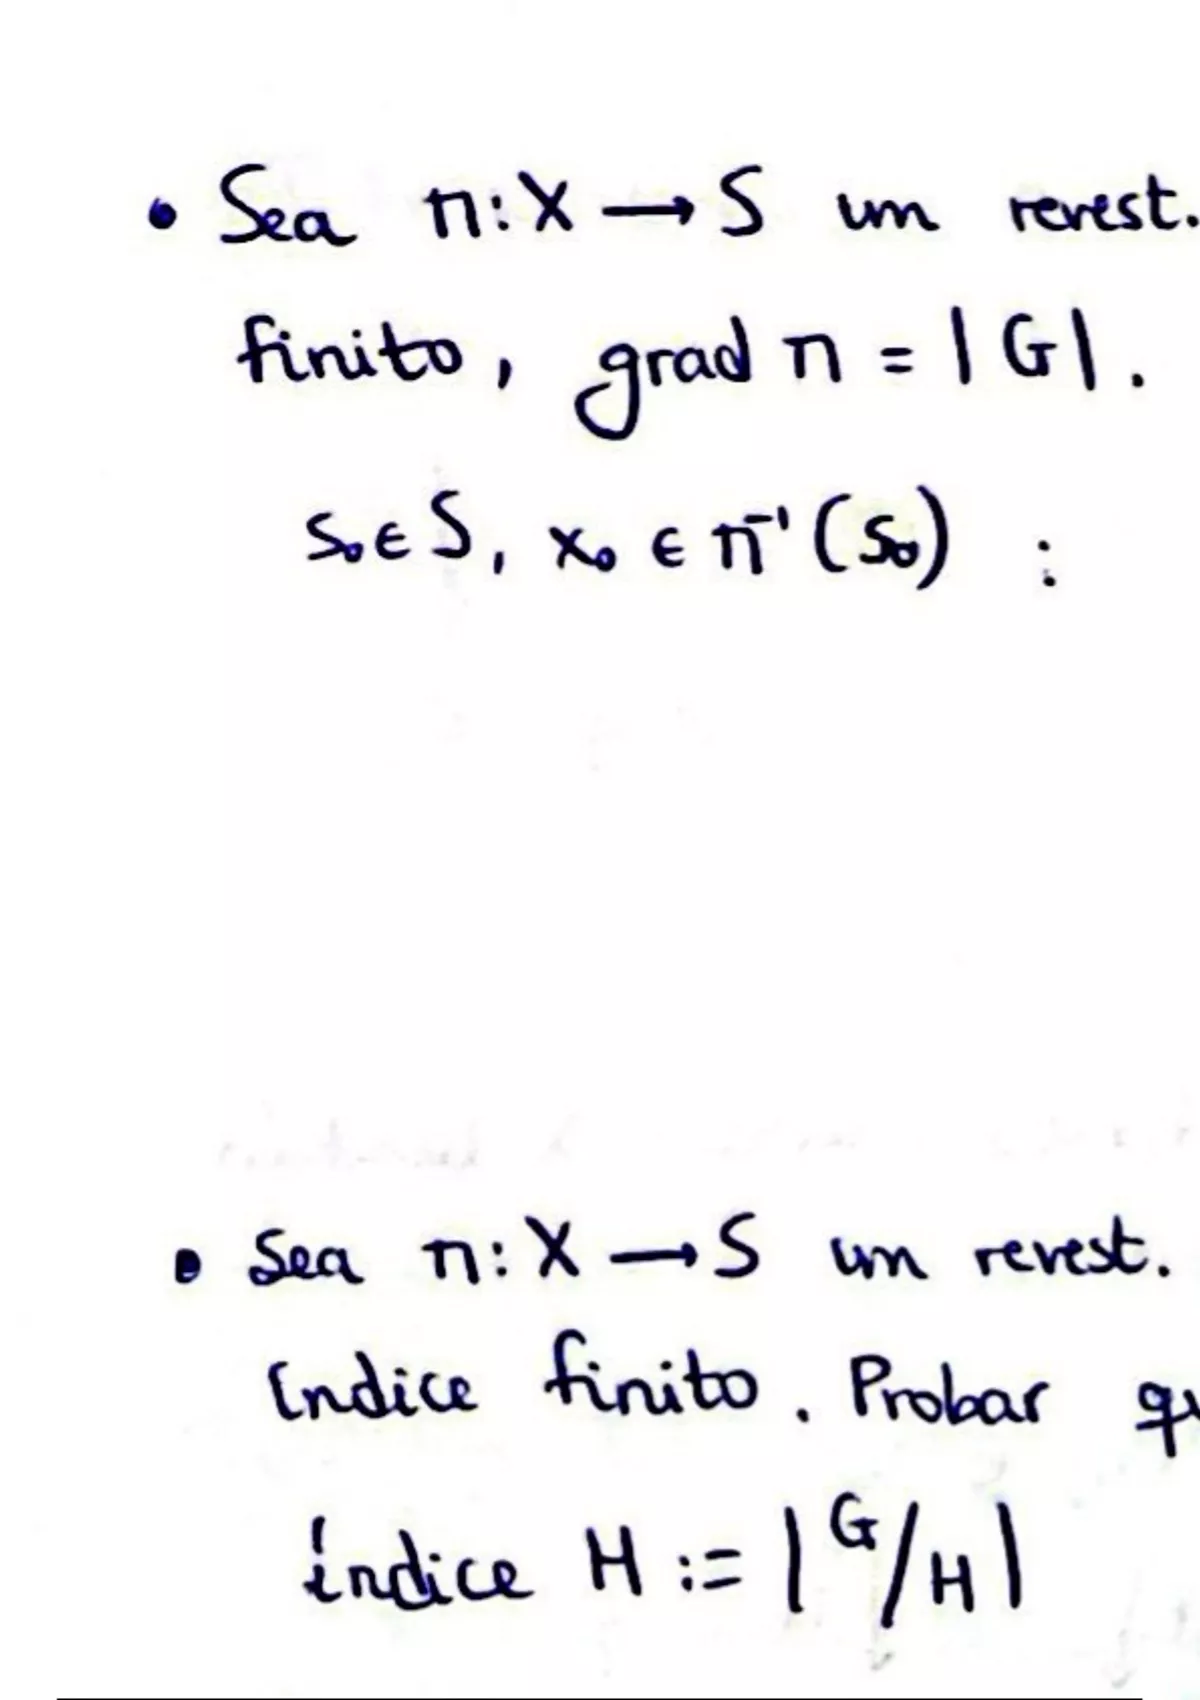 • Sea π: X → S un revest.
finito, grad π = |G|.
s₀ ∈ S, x₀ ∈ π⁻¹(s₀) :
• Sea π: X → S un revest.
índice finito. Probar qu
índice H := |G/H|